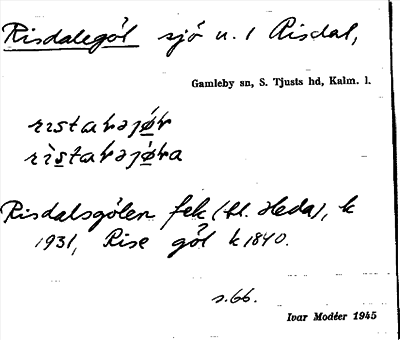 Risdalegöl sjö u. 1 Risdal,
Gamleby sn, S. Tjusts hd, Kalm. l.
Risdalsgölen fek (bl. Heda), k
1931, Rise göl k 1840.
s.66.
Ivar Modéer 1945